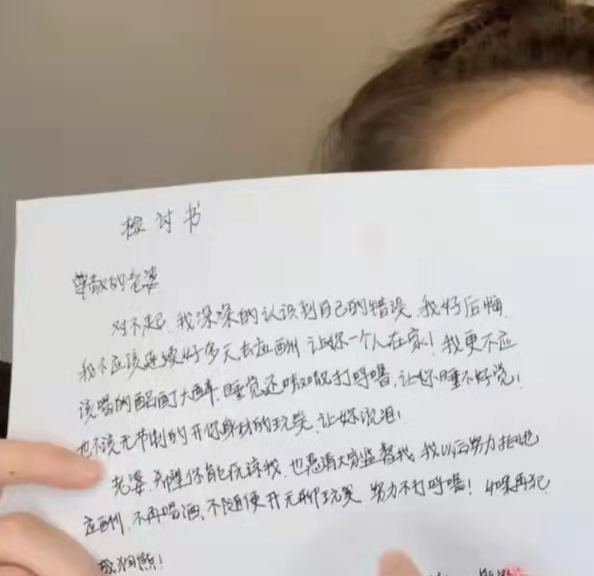 检讨书
尊敬的老婆
对不起，我深深的认识到自己的错误，我好后悔，
我不应该连续好多天去应酬，让你一个人在家！我更不应
该喝的酩酊大醉，睡觉还打呼噜，让你睡不好觉！
也不该无节制的开你身材的玩笑，让你流泪！
老婆，希望你能原谅我，也恳请大家监督我，我以后努力拒绝
应酬，不再喝酒，不随便开无聊玩笑，努力不打呼噜！如果再犯
我狗熊！